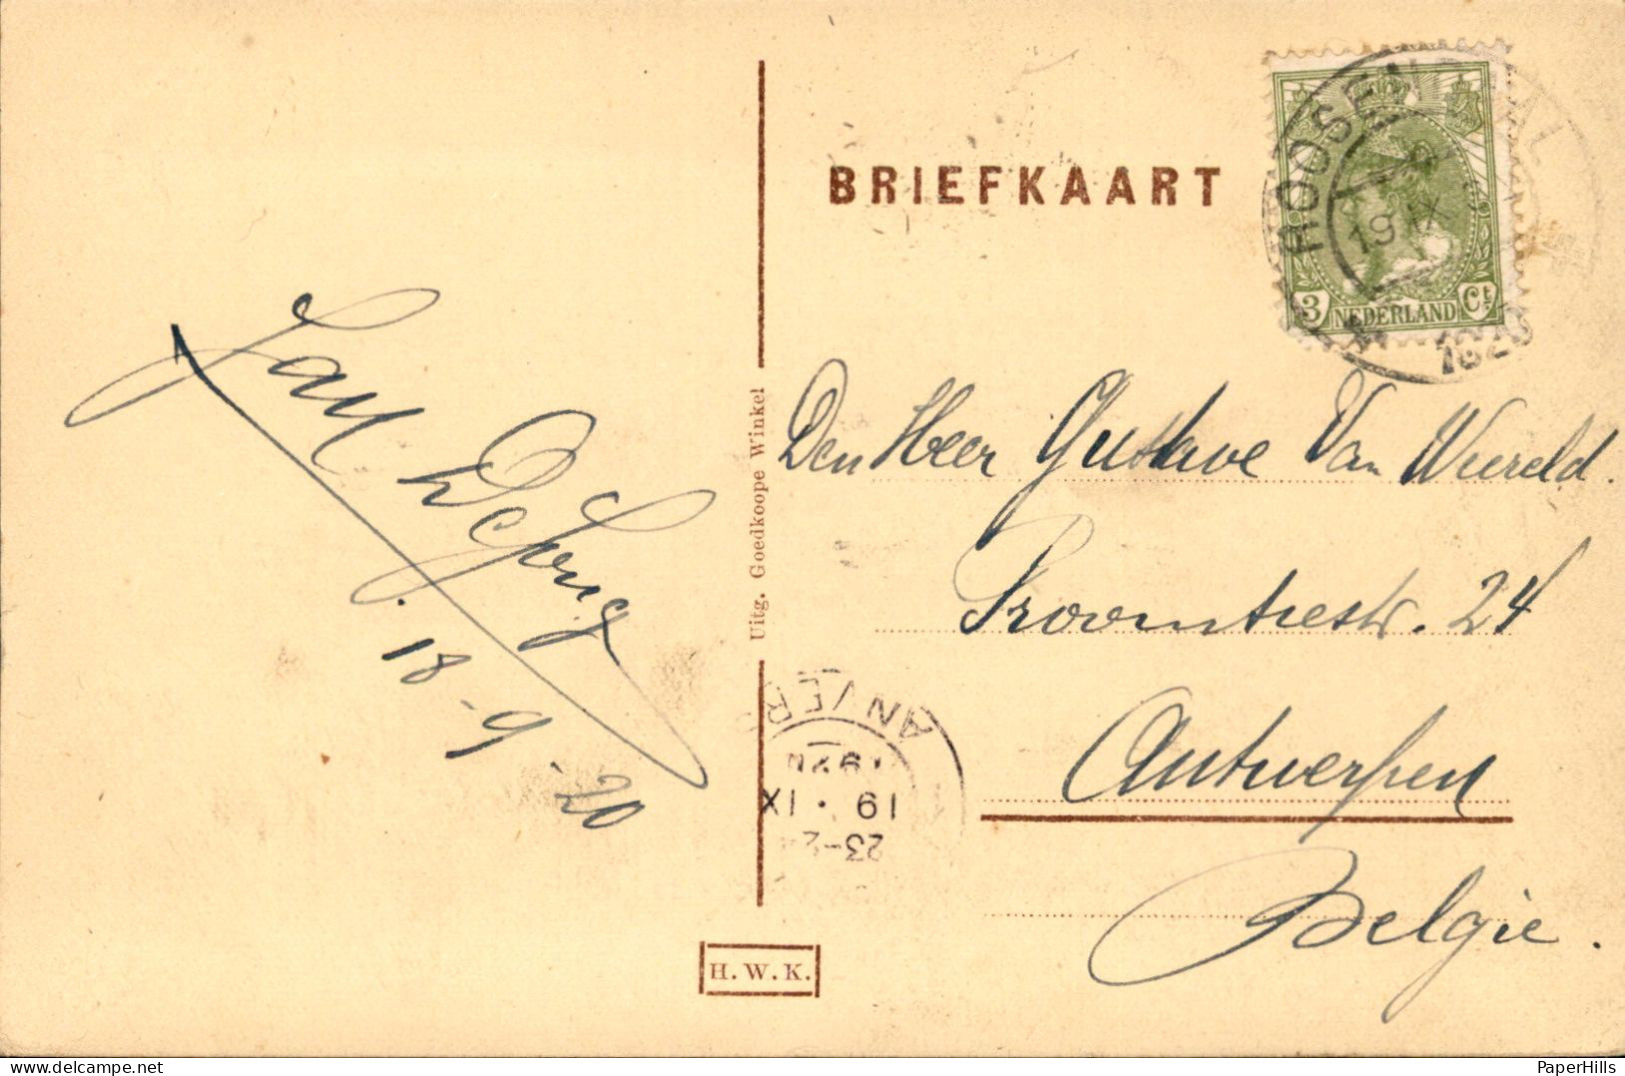 BRIEFKAART
ROOSENDAAL
19 IX
1920
3 NEDERLAND Ct
Jan De Jong
18-9-20
Den Heer Gustave Van Weereld.
Provintiestr. 24
Antwerpen
Belgie.
Uitg. Goedkoope Winkel
ANVERS
19 · IX
23-2
H.W.K.
PaperHills